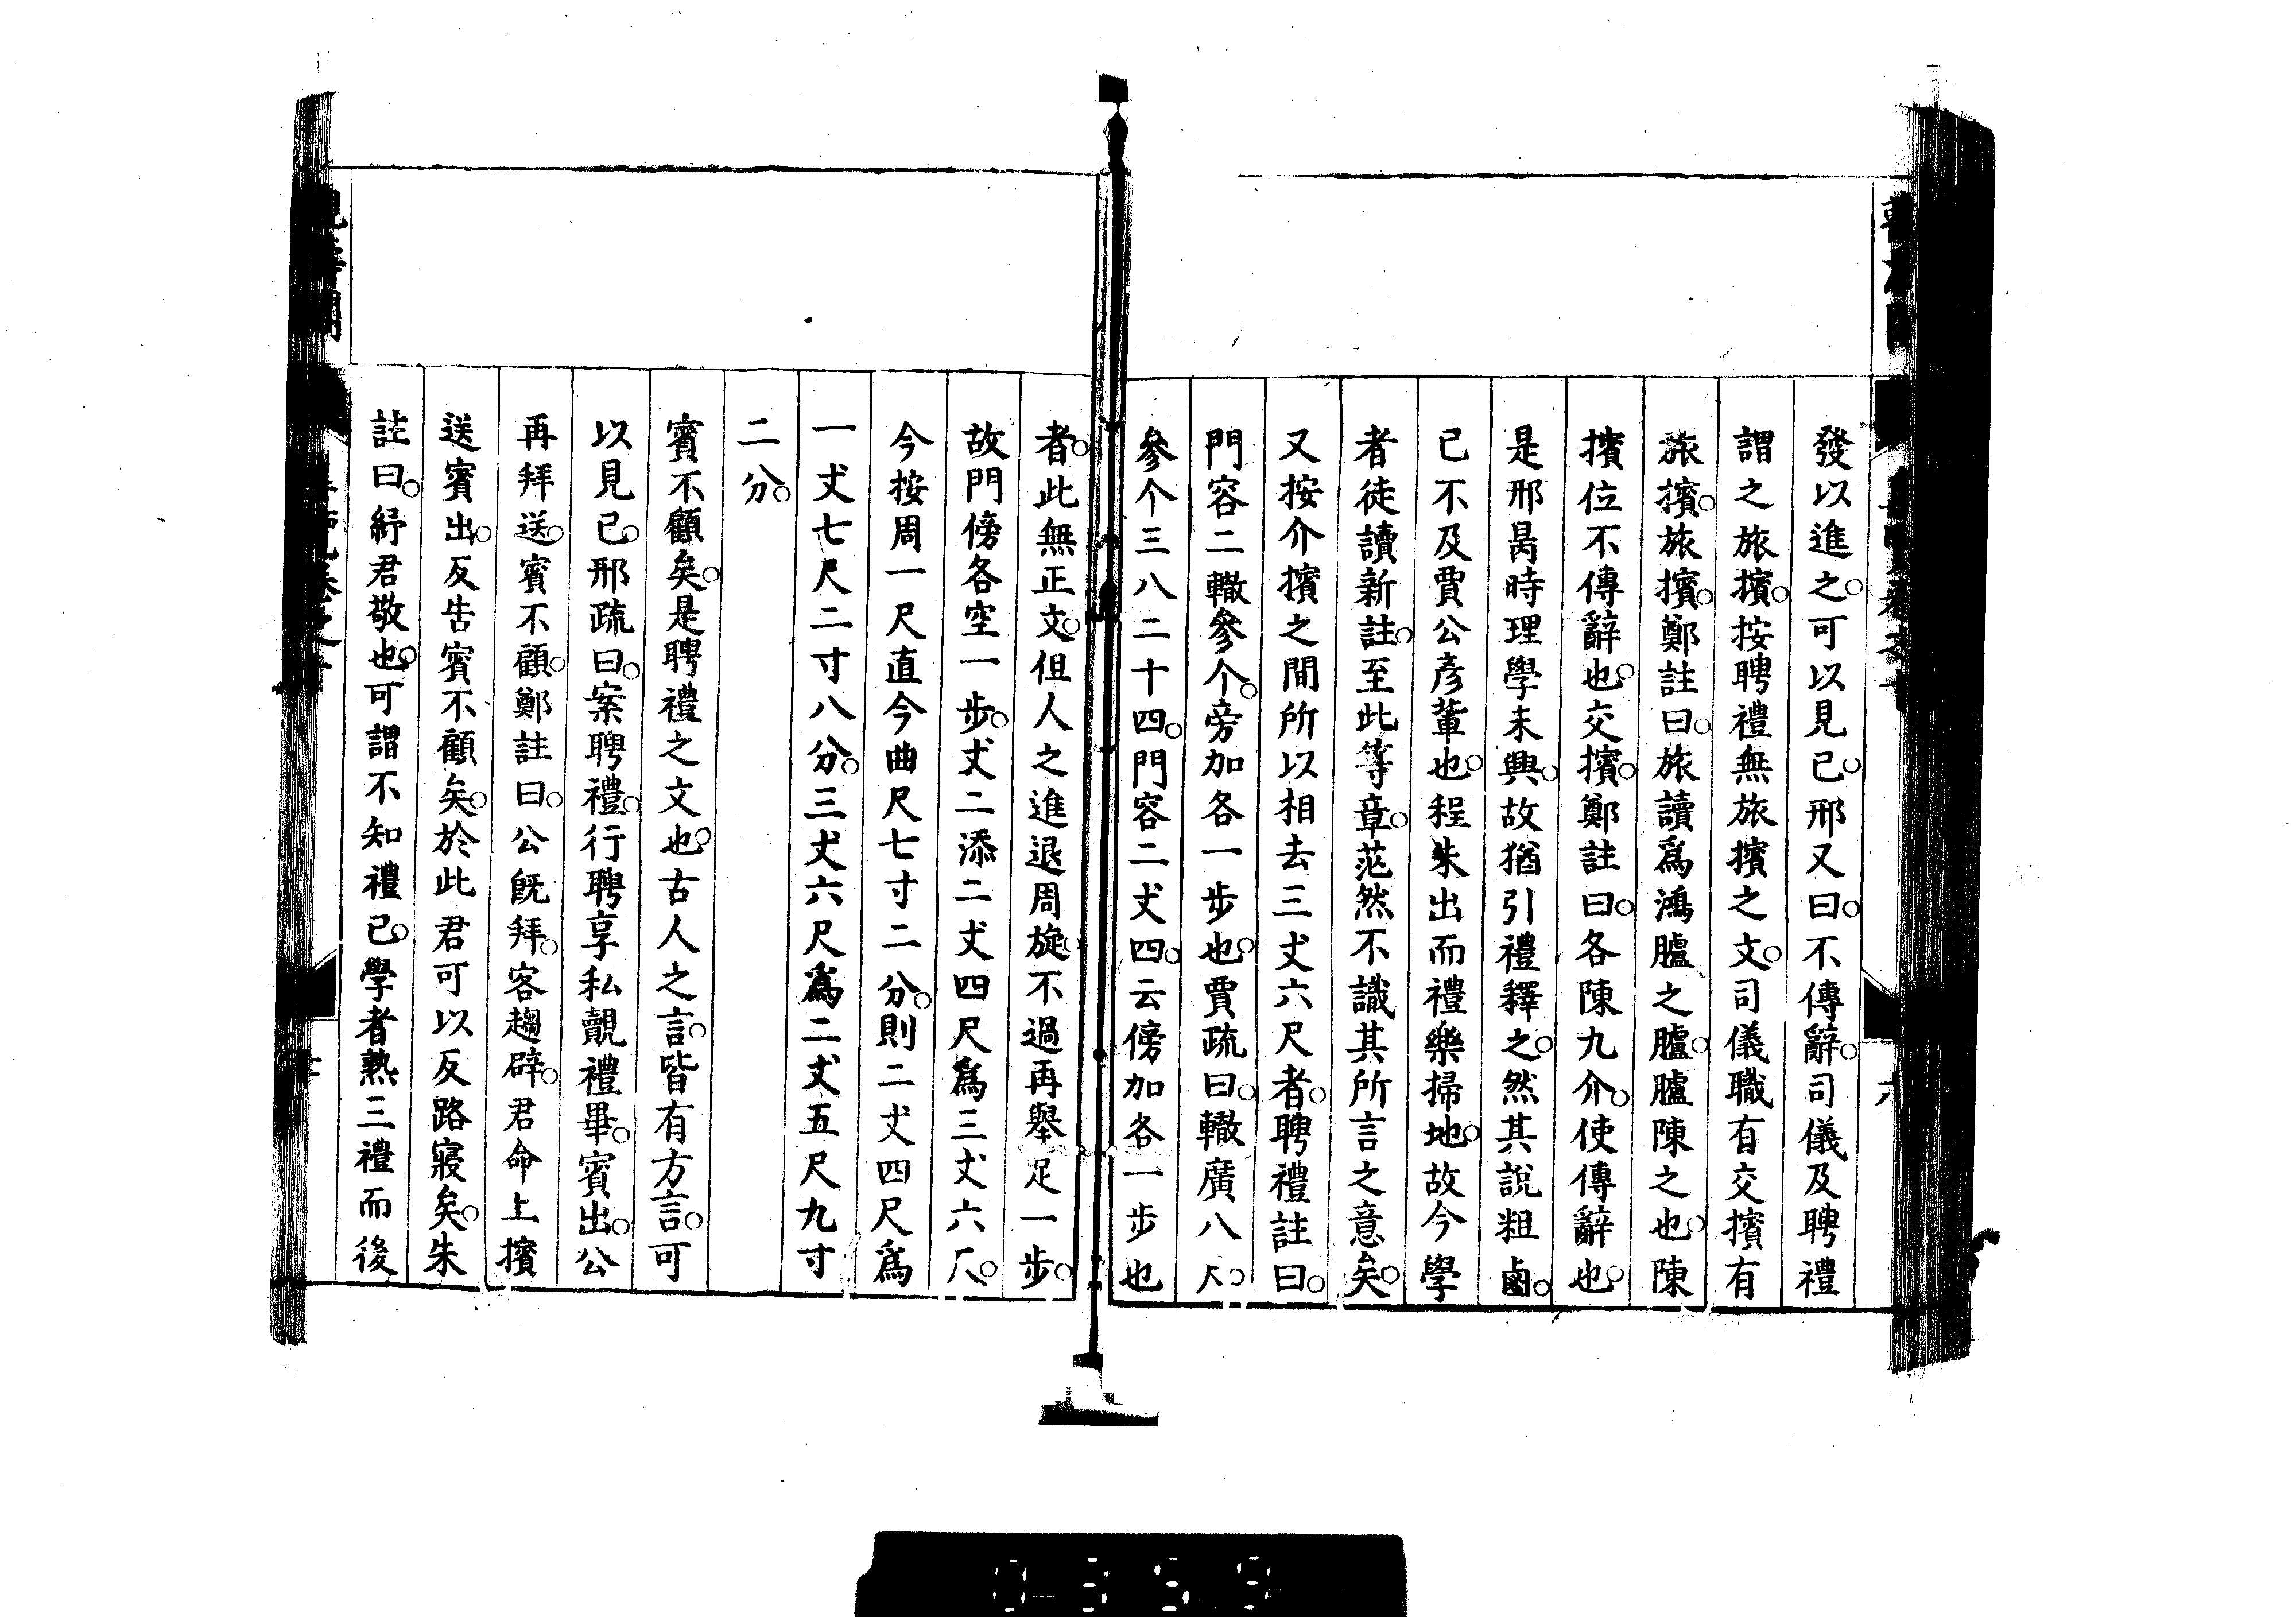 發以進之。可以見已。邢又曰。不傳辭。司儀及聘禮
謂之旅擯。按聘禮無旅擯之文。司儀職有交擯有
旅擯。旅擯。鄭註曰。旅讀爲鴻臚之臚。臚陳之也。陳
擯位不傳辭也。交擯。鄭註曰。各陳九介。使傳辭也。
是邢昺時理學未興。故猶引禮釋之。然其說粗鹵。
已不及賈公彥輩也。程朱出而禮樂掃地。故今學
者徒讀新註。至此等章。茫然不識其所言之意矣。
又按介擯之間所以相去三丈六尺者。聘禮註曰。
門容二轍參个。旁加各一步也。賈疏曰。轍廣八尺。
參个三八二十四。門容二丈四。云傍加各一步也
者。此無正文。但人之進退周旋。不過再舉足一步。
故門傍各空一步。丈二添二丈四尺爲三丈六尺。
今按周一尺直今曲尺七寸二分。則二丈四尺爲
一丈七尺二寸八分。三丈六尺爲二丈五尺九寸
二分。
賓不顧矣。是聘禮之文也。古人之言。皆有方言。可
以見已。邢疏曰。案聘禮。行聘享私覿禮畢。賓出。公
再拜送。賓不顧。鄭註曰。公既拜。客趨辟。君命上擯
送賓出。反告賓不顧矣。於此君可以反路寢矣。朱
註曰。紓君敬也。可謂不知禮已。學者熟三禮而後